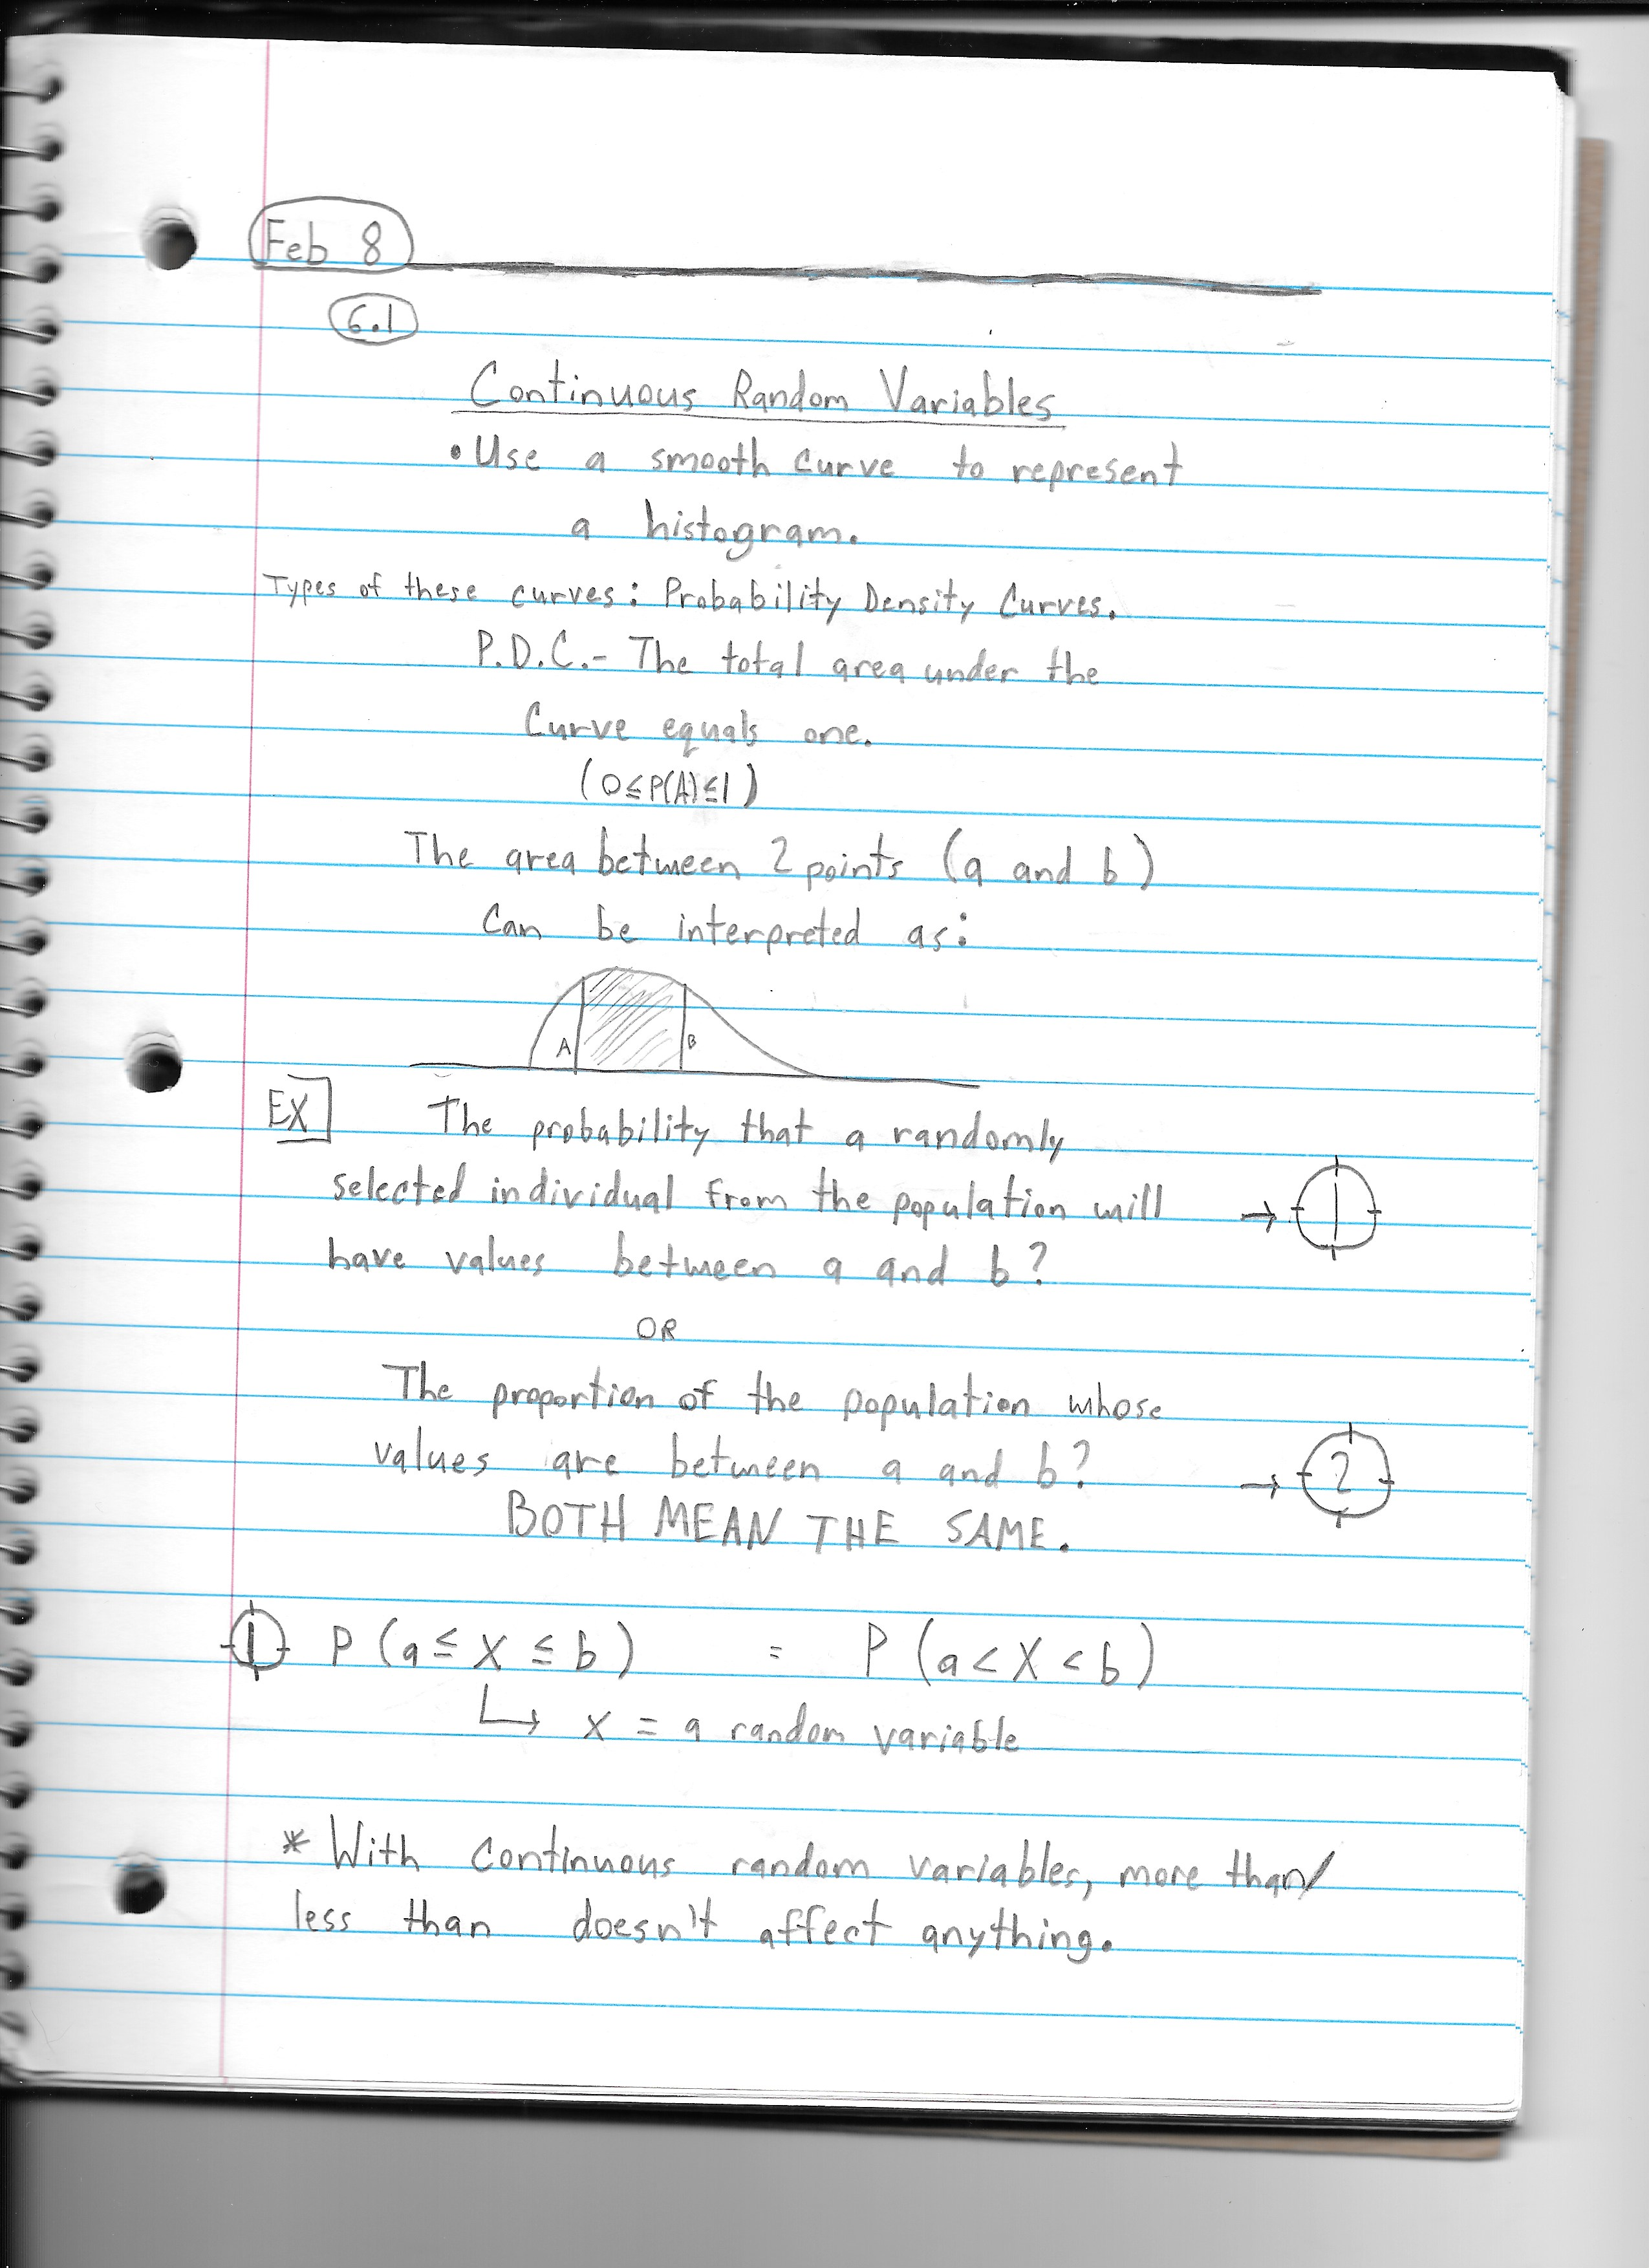 Feb 8
6.1
Continuous Random Variables
• Use a smooth curve to represent
a histogram.
Types of these curves: Probability Density Curves.
P.D.C.- The total area under the
Curve equals one.
(0≤P(A)≤1)
The area between 2 points (a and b)
Can be interpreted as:
A B
EX The probability that a randomly
selected individual from the population will → 1
have values between a and b?
OR
The proportion of the population whose
values are between a and b? → 2
BOTH MEAN THE SAME.
1 P (a ≤ X ≤ b) = P (a < X < b)
↳ x = a random variable
* With continuous random variables, more than/
less than doesn't affect anything.